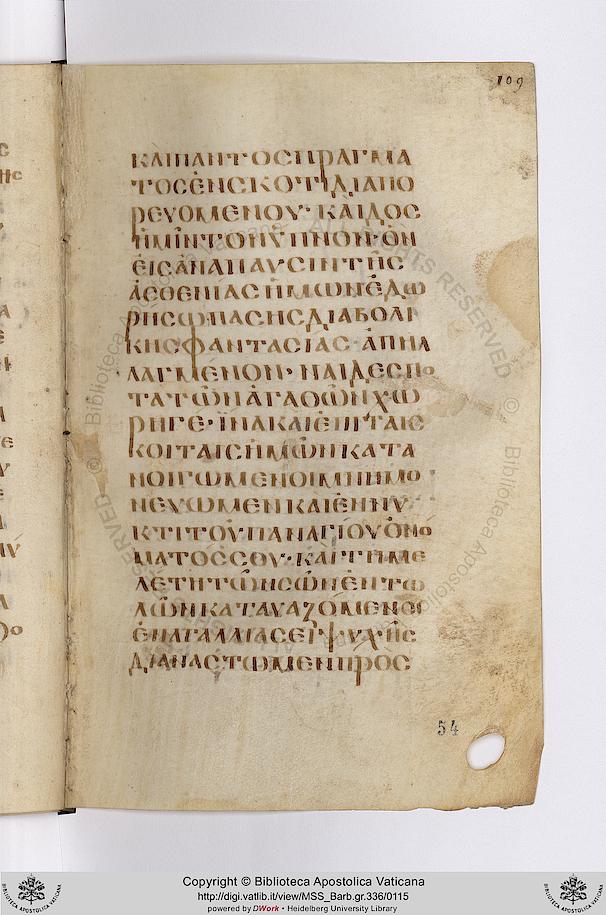 109
ΚΑΙΠΑΝΤΟCΠΡΑΓΜΑ
ΤΟCἘΝCΚΟΤΙΔΙΑΠΟ
ΡΕΥΟΜΕΝΟΥ· ΚΑΙΔΟC
ΗΜΙΝΤΟΝΥΠΝΟΝ· ὉΝ
ΕΙCἈΝΑΠΑΥCΙΝΤΗC
ἈCΘΕΝΙΑCΗΜΩΝἘΔΩ
ΡΗCΩΠΑCΗCΔΙΑΒΟΛΙ
ΚΗCΦΑΝΤΑCΙΑC· ἈΠΗΛ
ΛΑΓΜΕΝΟΝ· ΝΑΙΔΕCΠΟ
ΤΑΤΩΝἈΓΑΘΩΝΧΩ
ΡΗΓΕ· ΪΝΑΚΑΙΕΠΙΤΑΙC
ΚΟΙΤΑΙCΗΜΩΝΚΑΤΑ
ΝΟΙΓΩΜΕΝΟΙΜΝΗΜΟ
ΝΕΥΩΜΕΝΚΑΙἘΝΝΥ
ΚΤΙΤΟΥΠΑΝΑΓΙΟΥὈΝΟ
ΜΑΤΟCCΟΥ· ΚΑΙΤΗΜΕ
ΛΕΤΗΤΩΝCΩΝἘΝΤΩ
ΛΩΝΚΑΤΑΥΑΖΟΜΕΝΟΙ
ἘΝΑΓΑΛΛΙΑCΕΙΨΥΧΗC
ΔΙΑΝΑCΤΩΜΕΝΠΡΟC
54
Copyright © Biblioteca Apostolica Vaticana
http://digi.vatlib.it/view/MSS_Barb.gr.336/0115
powered by DWork • Heidelberg University Library
BIBLIOTECA APOSTOLICA VATICANA
BIBLIOTECA APOSTOLICA VATICANA